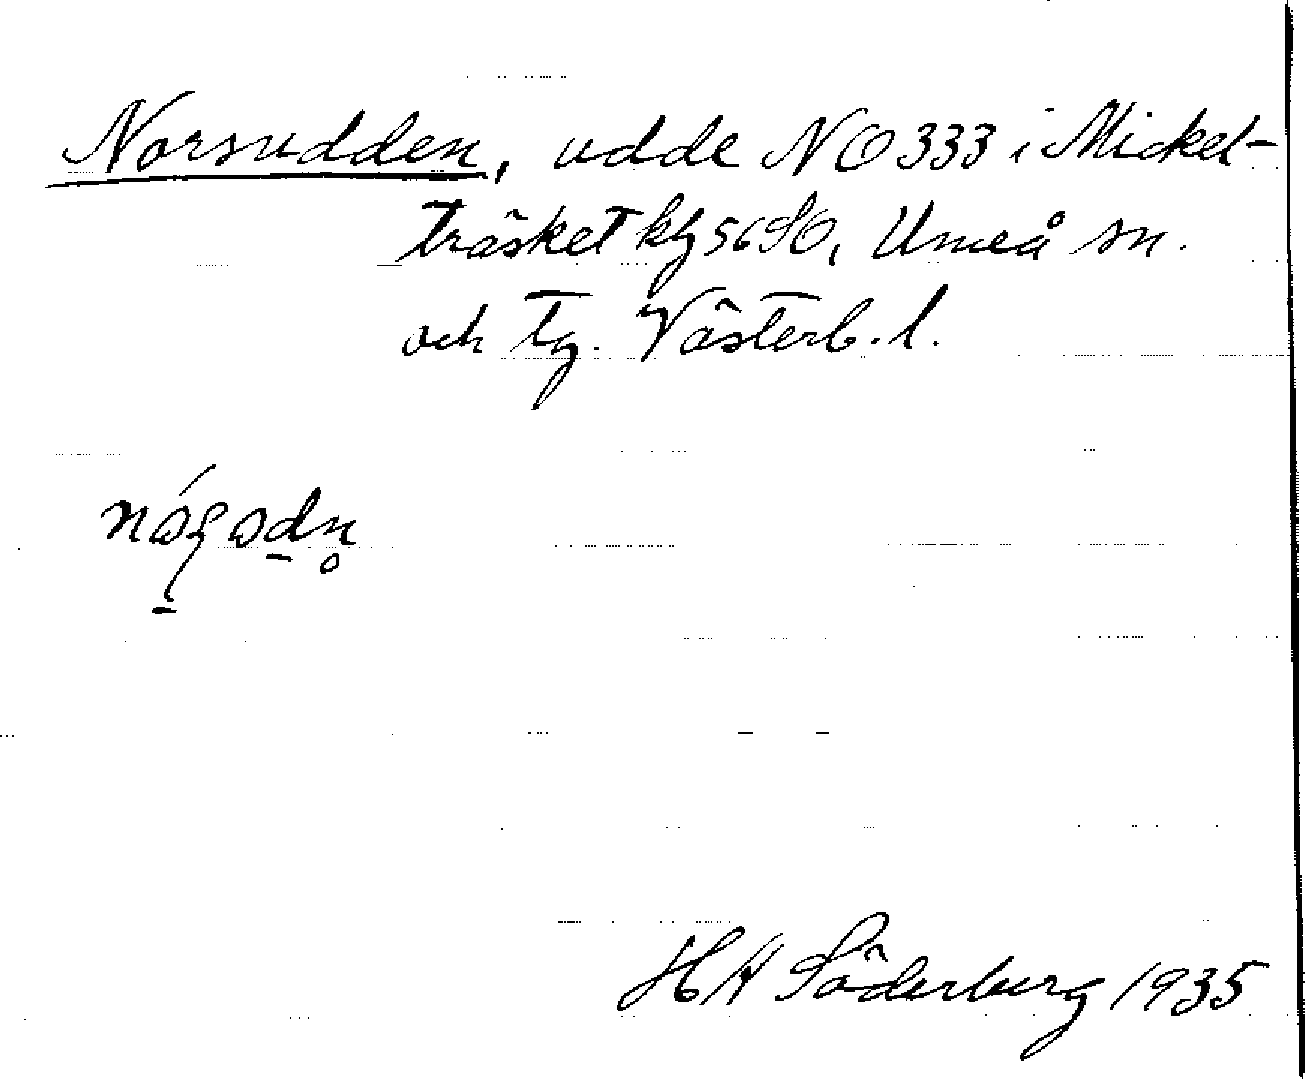 Norsudden, udde NO 333 i Mickel-
träsket kbl 56 SO, Umeå sn.
och tg. Västerb. l.
HA Söderberg 1935